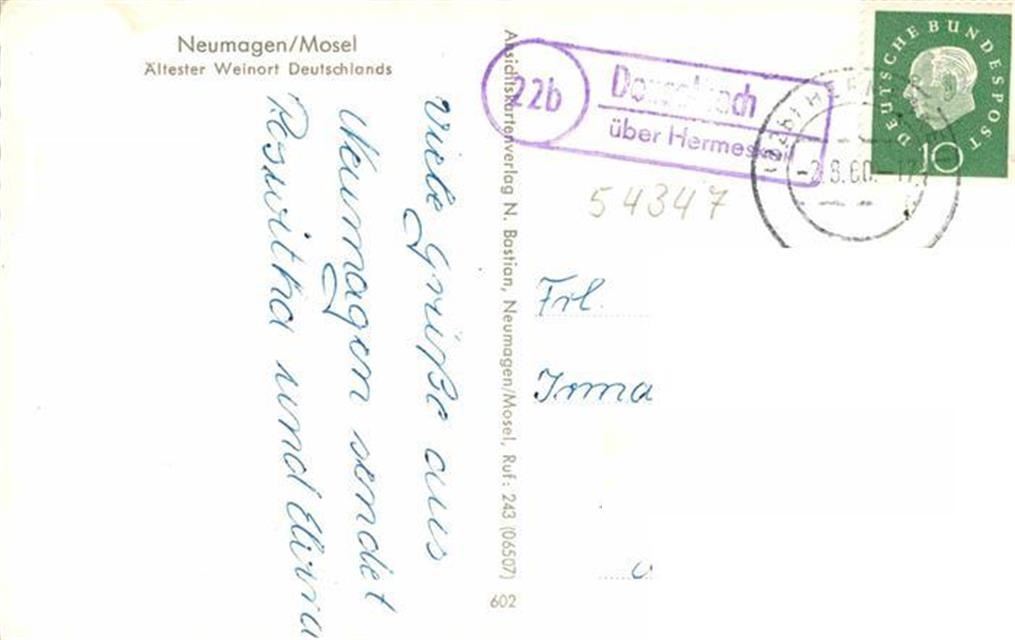 Neumagen/Mosel
Ältester Weinort Deutschlands
Viele Grüße aus
Neumagen sendet
Roswitha und
Ansichtskartenverlag N. Bastian, Neumagen/Mosel, Ruf: 243 (06507)
602
22b
über Hermeskeil
DEUTSCHE BUNDESPOST
10
8.60.-17
54347
Frl.
Irma